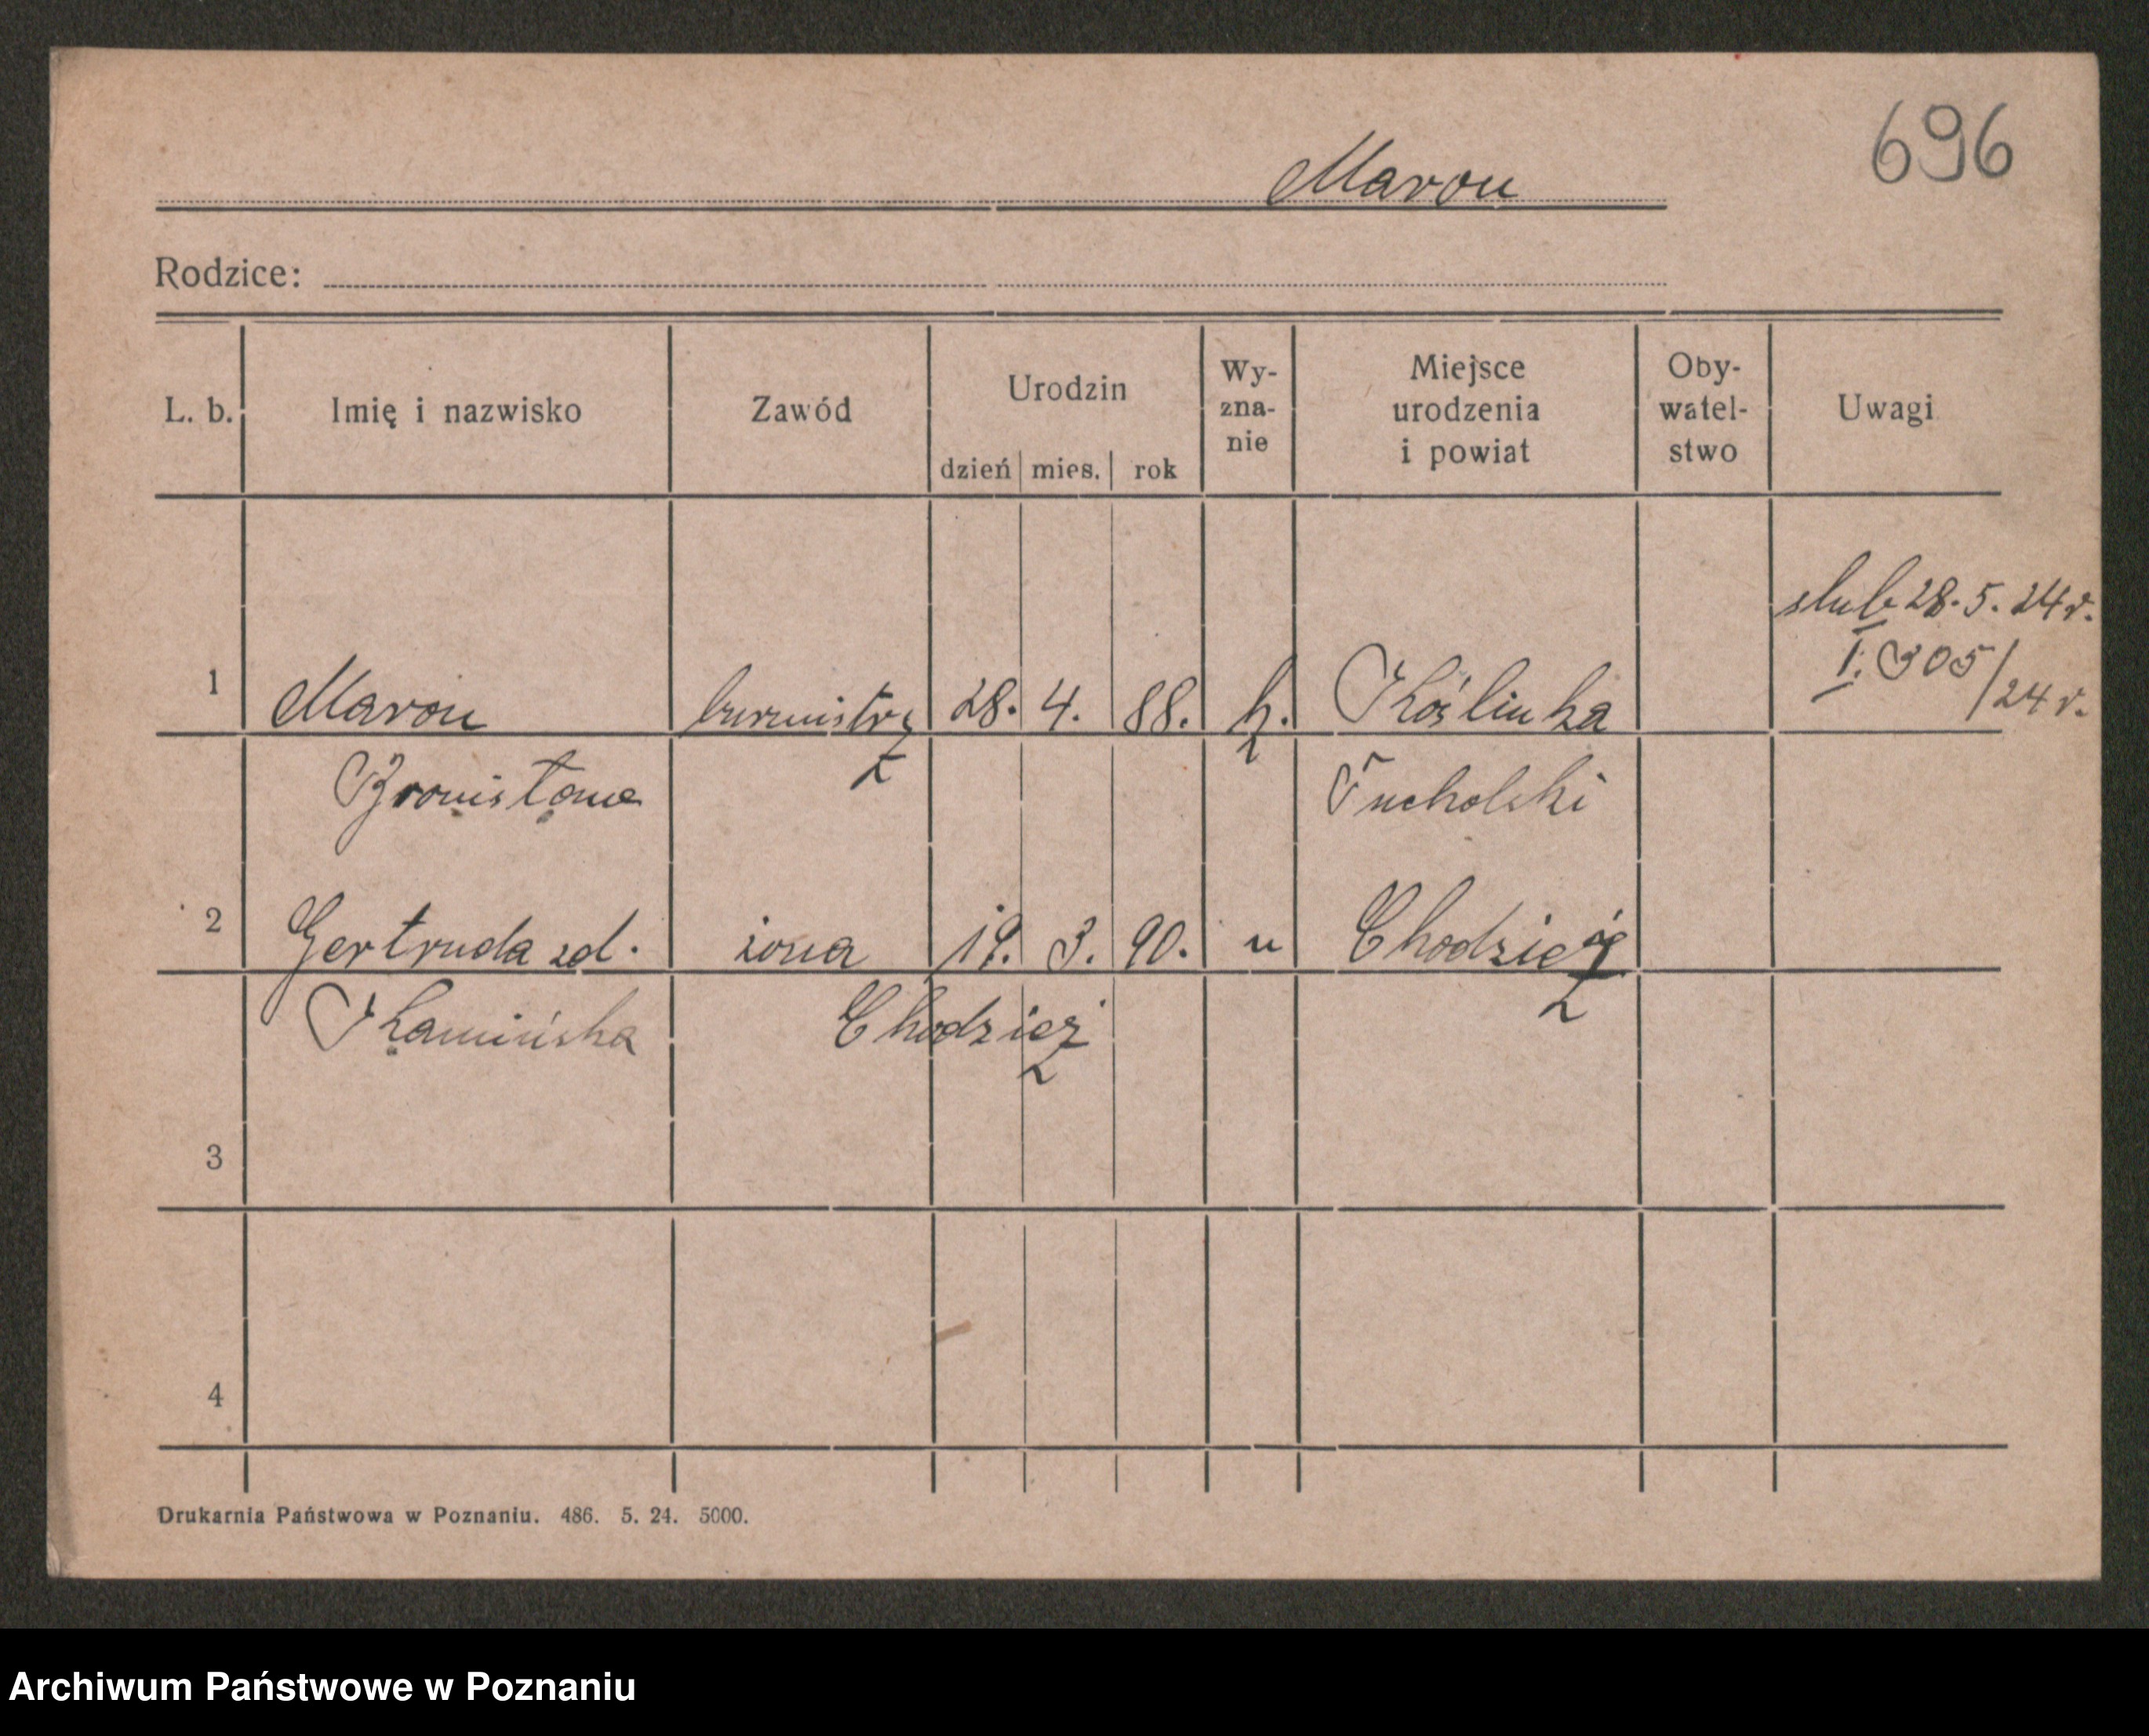 696
Maron
Rodzice:
L. b. Imię i nazwisko Zawód Urodzin dzień mies. rok Wy-zna-nie Miejsce urodzenia i powiat Oby-watel-stwo Uwagi
ślub 28. 5. 24 r.
I. 305/24 r.
1 Maron burmistrz 28. 4. 88. k. Koślinka
Bronisław Tucholski
2 Gertruda zd. żona 19. 3. 90. " Chodzież
Kamińska Chodzież
3
4
Drukarnia Państwowa w Poznaniu. 486. 5. 24. 5000.
Archiwum Państwowe w Poznaniu